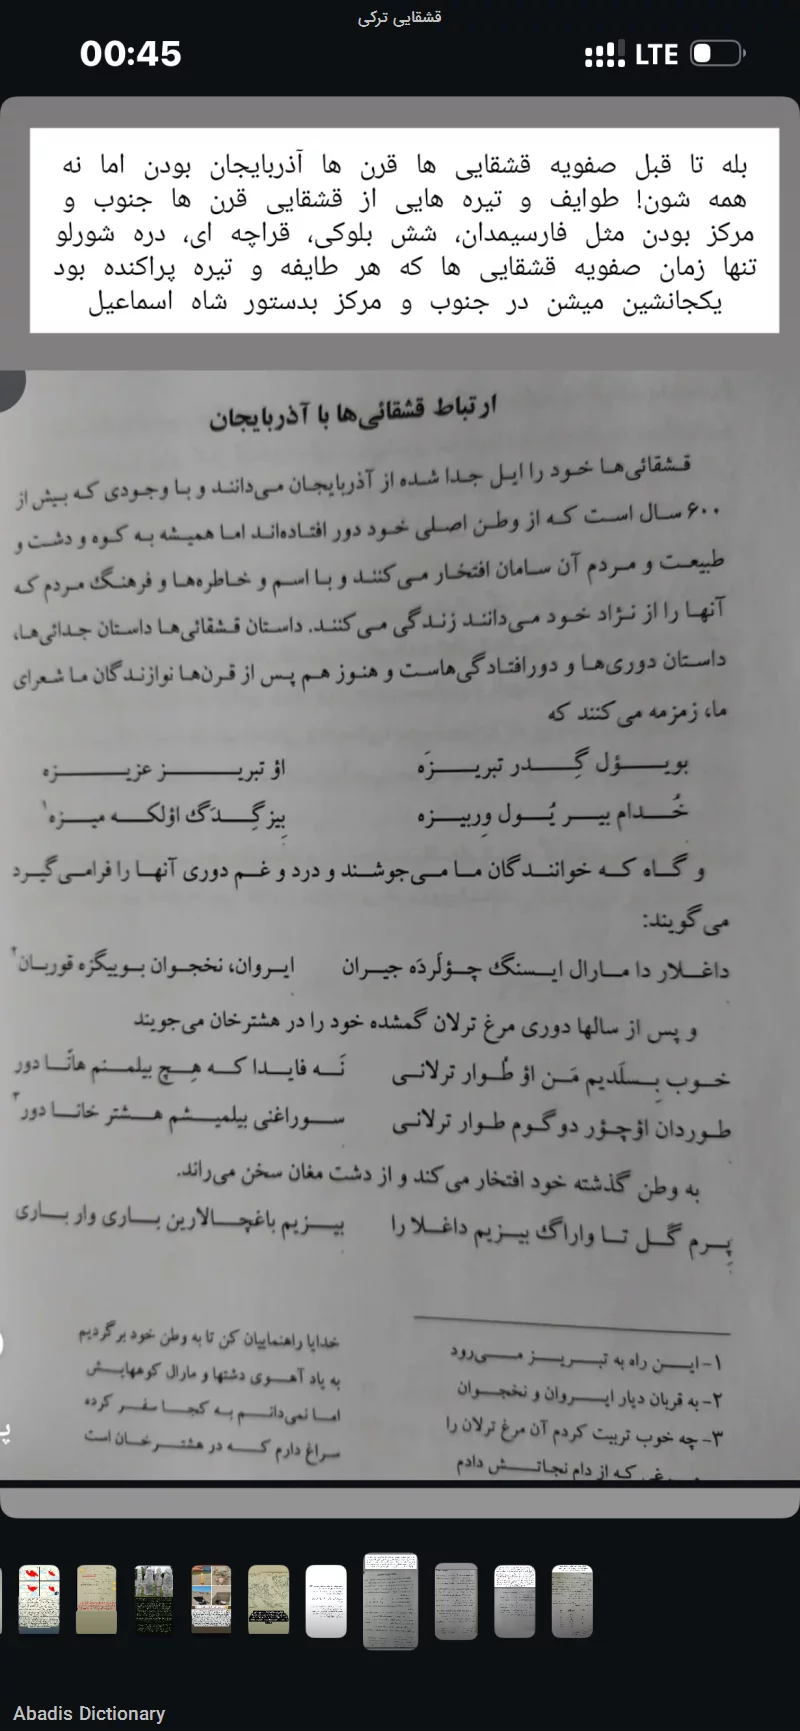 قشقایی ترکی
00:45
LTE
بله تا قبل صفویه قشقایی ها قرن ها آذربایجان بودن اما نه
همه شون! طوایف و تیره هایی از قشقایی قرن ها جنوب و
مرکز بودن مثل فارسیمدان، شش بلوکی، قراچه ای، دره شورلو
تنها زمان صفویه قشقایی ها که هر طایفه و تیره پراکنده بود
یکجانشین میشن در جنوب و مرکز بدستور شاه اسماعیل
ارتباط قشقائی‌ها با آذربایجان
قشقائی‌ها خود را ایل جدا شده از آذربایجان می‌دانند و با وجودی که بیش از
۶۰۰ سال است که از وطن اصلی خود دور افتاده‌اند اما همیشه به کوه و دشت و
طبیعت و مردم آن سامان افتخار می‌کنند و با اسم و خاطره‌ها و فرهنگ مردم که
آنها را از نژاد خود می‌دانند زندگی می‌کنند. داستان قشقائی‌ها داستان جدائی‌ها،
داستان دوری‌ها و دورافتادگی‌هاست و هنوز هم پس از قرن‌ها نوازندگان ما شعرای
ما، زمزمه می‌کنند که
بویــؤل گِــدر تبریــزَه اؤ تبریــز عزیــزه
خُــدام بیــر یُــول وِربیــزه بِیز گِــدَگ اؤلکــه میــزه۱
و گاه که خوانندگان ما می‌جوشند و درد و غم دوری آنها را فرامی‌گیرد
می‌گویند:
داغــلار دا مــارال ایــسنگ چــؤلَردَه جیــران ایــروان، نخجــوان بــوییگزه قوربــان۲
و پس از سالها دوری مرغ ترلان گمشده خود را در هشترخان می‌جویند
خــوب بِــسلَدیم مَــن اؤ طُــوار ترلانــی نَــه فایــدا کــه هِــچ بیلمــنم هانّــا دور
طــوردان اؤچــؤر دوگــوم طــوار ترلانــی ســوراغنی بیلمیــشم هــشتر خانــا دور۳
به وطن گذشته خود افتخار می‌کند و از دشت مغان سخن می‌راند.
پِــرم گــل تــا واراگ بیــزیم داغــلا را بیــزیم باغچــالارین بــاری وار بــاری
۱- ایــن راه به تبــریــز مــی‌رود خدایا راهنماییان کن تا به وطن خود برگردیم
۲- به قربان دیار ایــروان و نخجــوان به یاد آهــوی دشتها و مارال کوههایــش
۳- چه خوب تربیت کردم آن مرغ ترلان را اما نمی‌دانــم بــه کجــا سفــر کرده
که از دام نجاتــش دادم سراغ دارم کــه در هشتــرخــان است
Abadis Dictionary